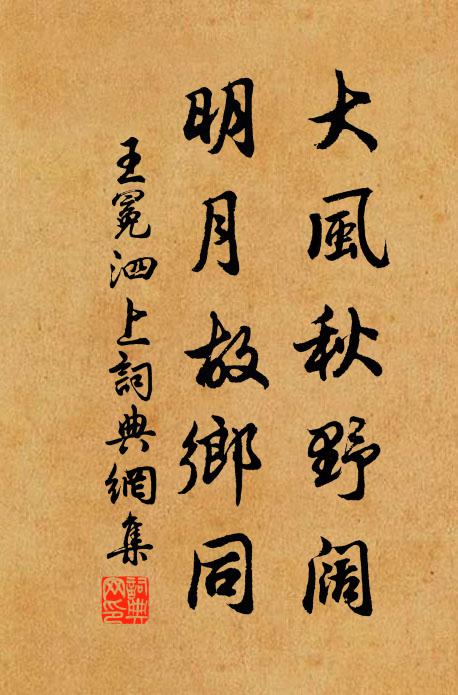 大風秋野闊
明月故鄉同
王冕泗上詞典網集
詞典網印